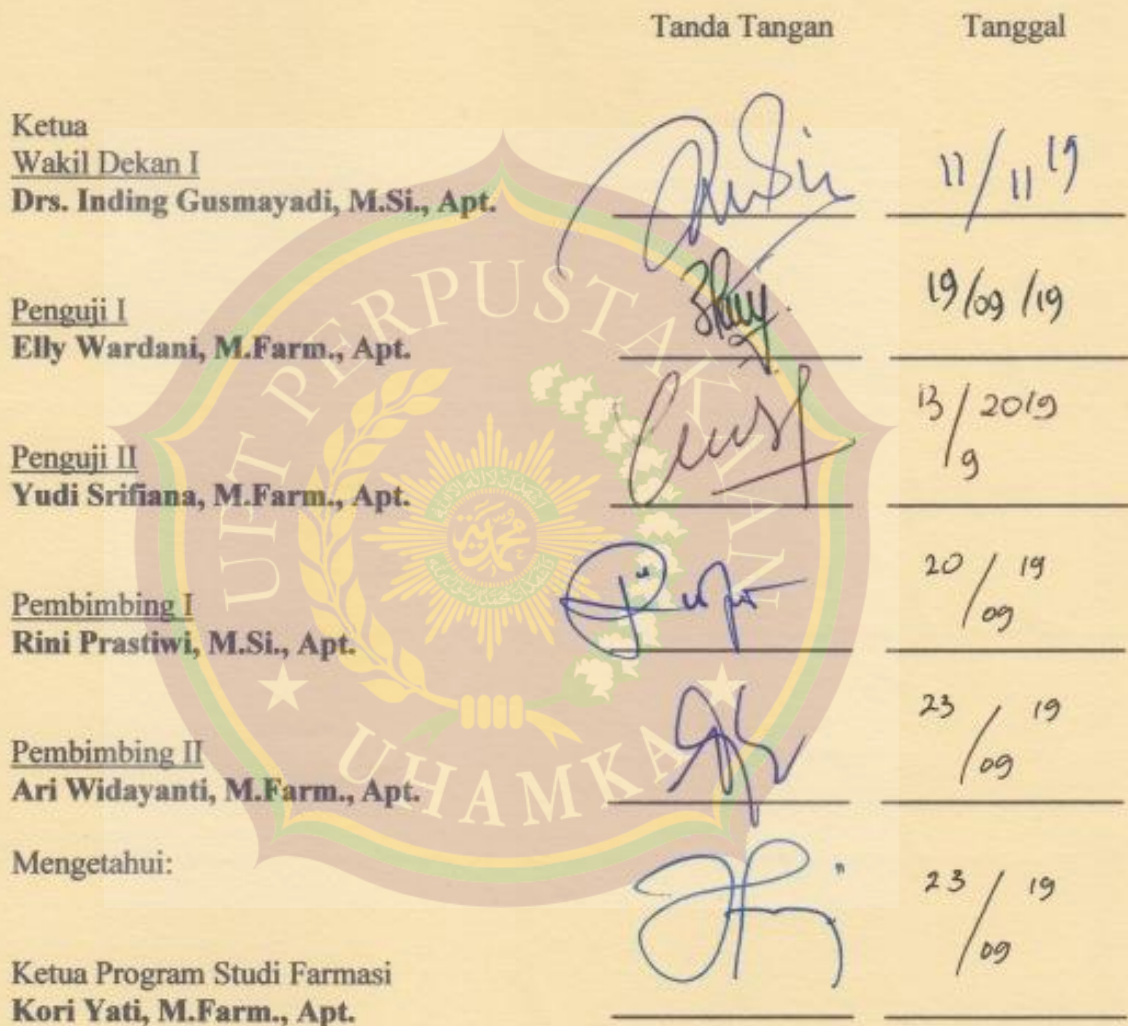 Tanda Tangan Tanggal
Ketua
Wakil Dekan I
Drs. Inding Gusmayadi, M.Si., Apt. 11/11 19
Penguji I
Elly Wardani, M.Farm., Apt. 19/09/19
Penguji II
Yudi Srifiana, M.Farm., Apt. 13/9 2019
Pembimbing I
Rini Prastiwi, M.Si., Apt. 20/09 19
Pembimbing II
Ari Widayanti, M.Farm., Apt. 23/09 19
Mengetahui:
Ketua Program Studi Farmasi
Kori Yati, M.Farm., Apt. 23/09 19
UPT PERPUSTAKAAN
UHAMKA